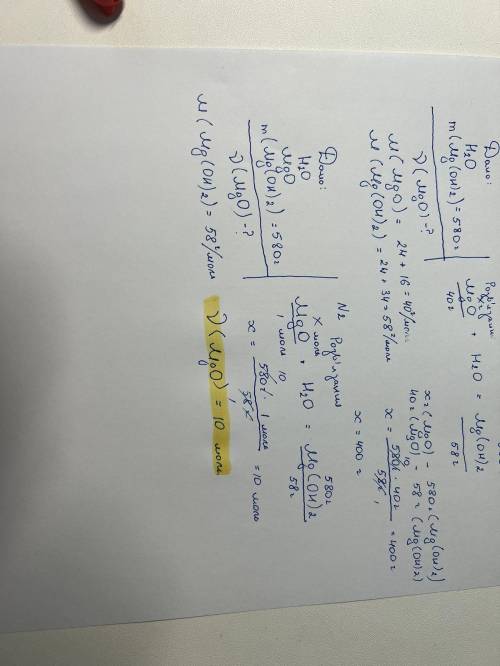 Дано:
H₂O
m(Mg(OH)₂) = 580г
ν(MgO) - ?
M(MgO) = 24 + 16 = 40г/моль
M(Mg(OH)₂) = 24 + 34 = 58г/моль
Розв'язання
x г
MgO + H₂O = Mg(OH)₂
40г 58г
x г (MgO) - 580г (Mg(OH)₂)
40г (MgO) - 58г (Mg(OH)₂)
x = 580г · 40г / 58г = 400г
10 1
x = 400г
N2
Дано:
H₂O
MgO
m(Mg(OH)₂) = 580г
ν(MgO) - ?
M(Mg(OH)₂) = 58г/моль
Розв'язання
x моль 580г
MgO + H₂O = Mg(OH)₂
1 моль 58г
x = 580г · 1 моль / 58г = 10 моль
10 1
ν(MgO) = 10 моль